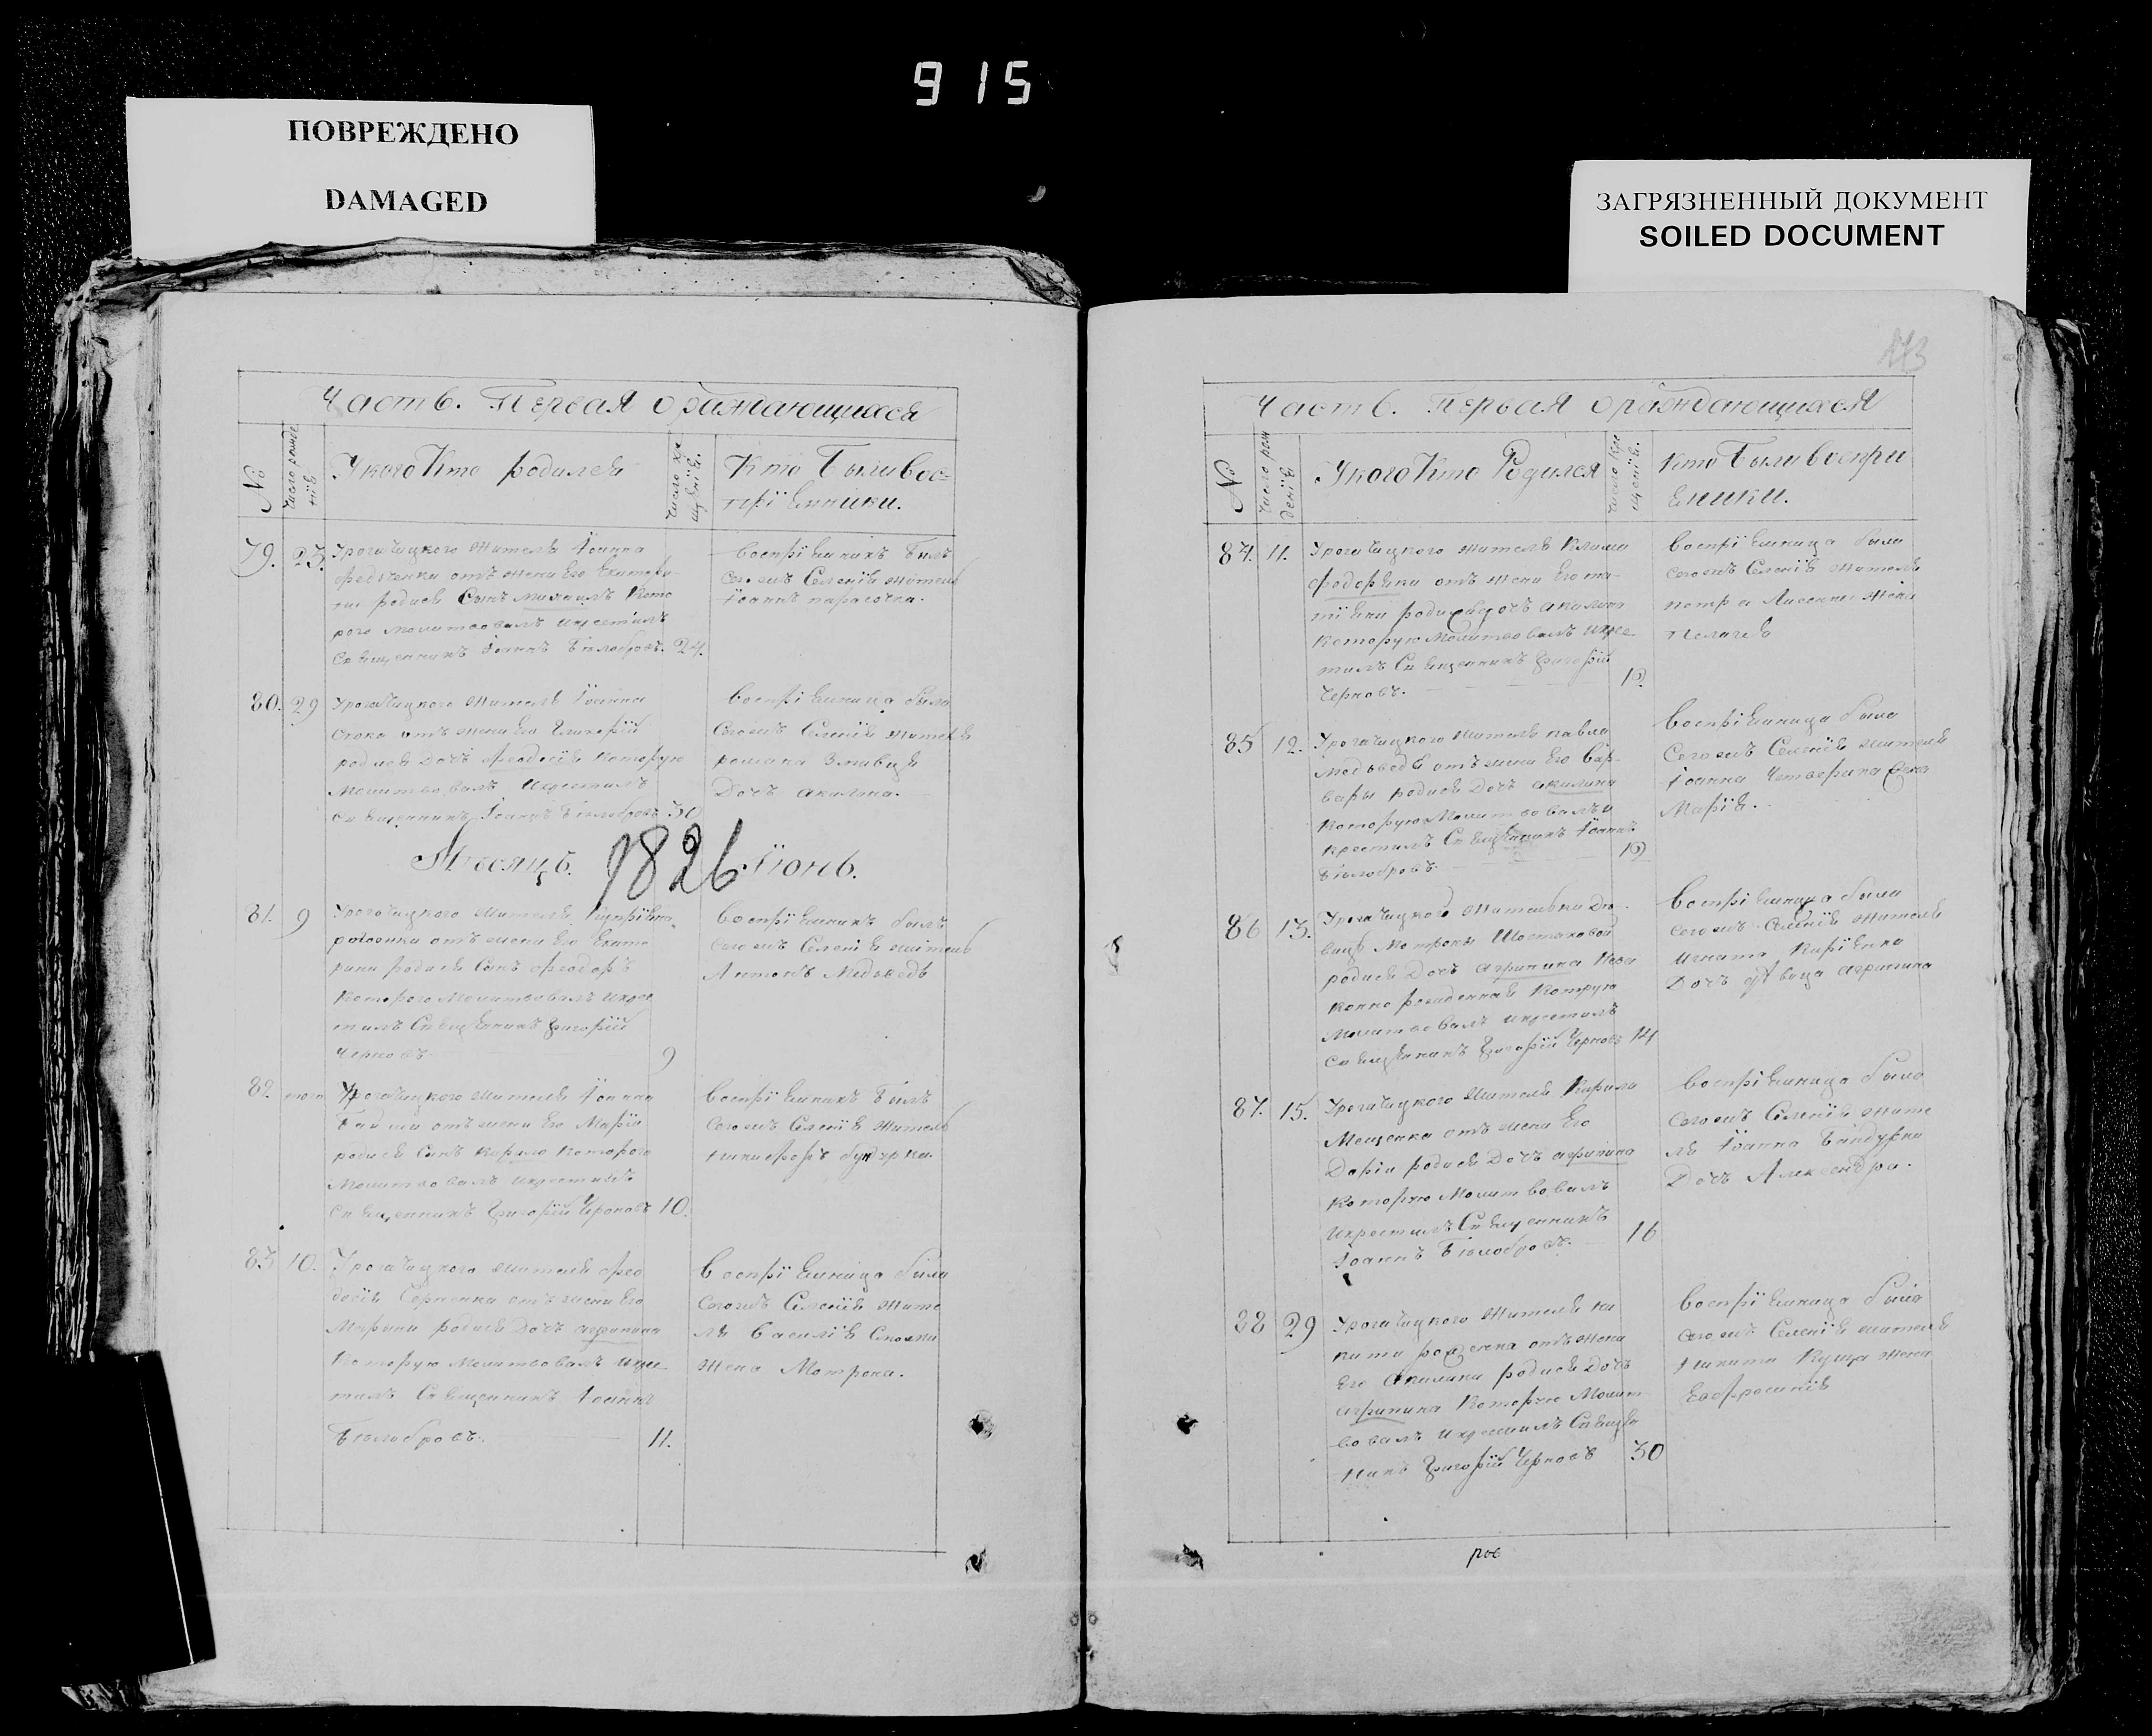 915
ПОВРЕЖДЕНО
DAMAGED
ЗАГРЯЗНЕННЫЙ ДОКУМЕНТ
SOILED DOCUMENT
Часть. Первая оражающихся
№
Число рожде
нїя
Укого Кто родился
Число кре
щенїя.
Кто Были вос=
прїемники.
79. 23.
Урогачицкого жителя Іоанна
Федченки отъ жены Его Екатери-
ны родися Сынъ Михаилъ Кото
рого молитвовалъ икрестилъ
Священникъ Іоаннъ Белобровъ. 24.
воспрїемникъ Былъ
Сегожъ Селенїя житель
Іоаннъ
80. 29
Урогачицкого жителя Іоанна
отъ жены Его Гликерїи
родися Дочь Феодосїя Которую
Молитвовалъ Икрестилъ
Священникъ Іоаннъ Белобровъ 30
воспрїемница была
Сегожъ Селенїя жителя
романа
Дочь акилина.
Месяцъ. 1826 Іюнь.
81. 9
Урогачицкого жителя
отъ жены Его Екате
рины родися Сынъ Феодоръ
Которого Молитвовалъ икрес
тилъ Священникъ Григорїй
Черновъ 9
воспрїемникъ былъ
Сегожъ Селенїя житель
Антонъ Медведь
82. того
Урогачицкого жителя Іоанна
отъ жены Его Марїи
родися Сынъ Кирило Которого
Молитвовалъ икрестилъ
Священникъ Григорїй Черновъ 10.
воспрїемникъ Былъ
Сегожъ Селенїя житель
Никифоръ
83 10.
Урогачицкого жителя Фео
досїя отъ жены Его
Марины родися Дочь агрипина
Которую Молитвовалъ икрес
тилъ Священникъ Іоаннъ
Белобровъ. 11.
воспрїемница была
Сегожъ Селенїя жите
ля Василїя
жена Мотрона.
Часть. Первая ораждающихся
№
Число рож
денїя
Укого Кто Родился
Число Кре
щенїя.
Кто Были воспри
емники.
84. 11.
Урогачицкого жителя Клима
отъ жены Его та-
тїяни родися дочь акилина
Которую Молитвовалъ икрес
тилъ Священникъ Григорїй
Черновъ. 12
воспрїемница была
Сегожъ Селенїя жителя
петра жена
Пелагея
85 12.
Урогачицкого жителя павла
Медведя отъ жены Его Вар-
вары родися Дочь акилина
Которую Молитвовалъ и
крестилъ Священникъ Іоаннъ
Белобровъ. 12
Воспрїемница была
Сегожъ Селенїя жителя
Іоанна
Марїя.
86 13.
Урогачицкого жительки Де-
вицы Мотроны
родися Дочь агрипина неза
конно рожденная Которую
Молитвовалъ икрестилъ
Священникъ Григорїй Черновъ 14
Воспрїемница была
Сегожъ Селенїя жителя
Игната Кирїенка
Дочь девица агрипина
87. 15.
Урогачицкого жителя Кирила
Мощенка отъ жены Его
Дарїи родися Дочь агрипина
Которую Молитвовалъ
Икрестилъ Священникъ
Іоаннъ Белобровъ. 16
Воспрїемница была
Сегожъ Селенїя жите
ля Іоанна Бандурки
Дочь Александра.
88 29
Урогачицкого жителя ни
киты отъ жены
Его Акилины родися Дочь
агрипина Которую Молит
вовалъ икрестилъ Священ
никъ Григорїй Черновъ 30
Воспрїемница была
Сегожъ Селенїя жителя
Никиты Куща жена
Евфросинїя